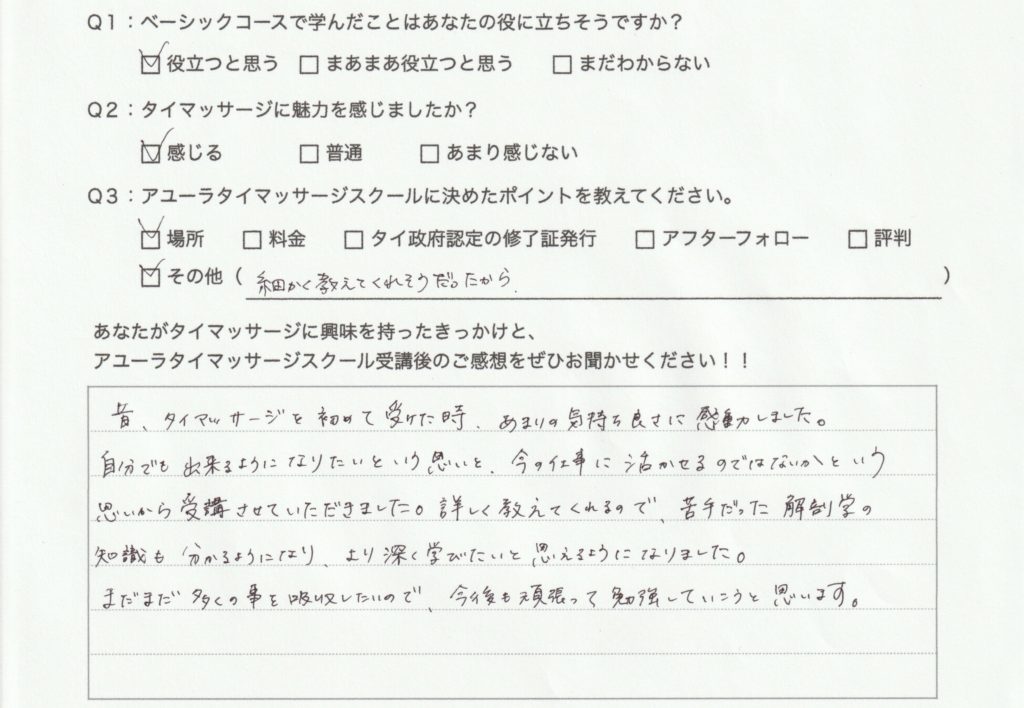 Q1：ベーシックコースで学んだことはあなたの役に立ちそうですか？
☑ 役立つと思う □ まあまあ役立つと思う □ まだわからない
Q2：タイマッサージに魅力を感じましたか？
☑ 感じる □ 普通 □ あまり感じない
Q3：アユーラタイマッサージスクールに決めたポイントを教えてください。
☑ 場所 □ 料金 □ タイ政府認定の修了証発行 □ アフターフォロー □ 評判
☑ その他（ 細かく教えてくれそうだったから. ）
あなたがタイマッサージに興味を持ったきっかけと、
アユーラタイマッサージスクール受講後のご感想をぜひお聞かせください！！
昔、タイマッサージを初めて受けた時、あまりの気持ち良さに感動しました。
自分でも出来るようになりたいという思いと、今の仕事に活かせるのではないかという
思いから受講させていただきました。詳しく教えてくれるので、苦手だった解剖学の
知識も分かるようになり、より深く学びたいと思えるようになりました。
まだまだ多くの事を吸収したいので、今後も頑張って勉強していこうと思います。